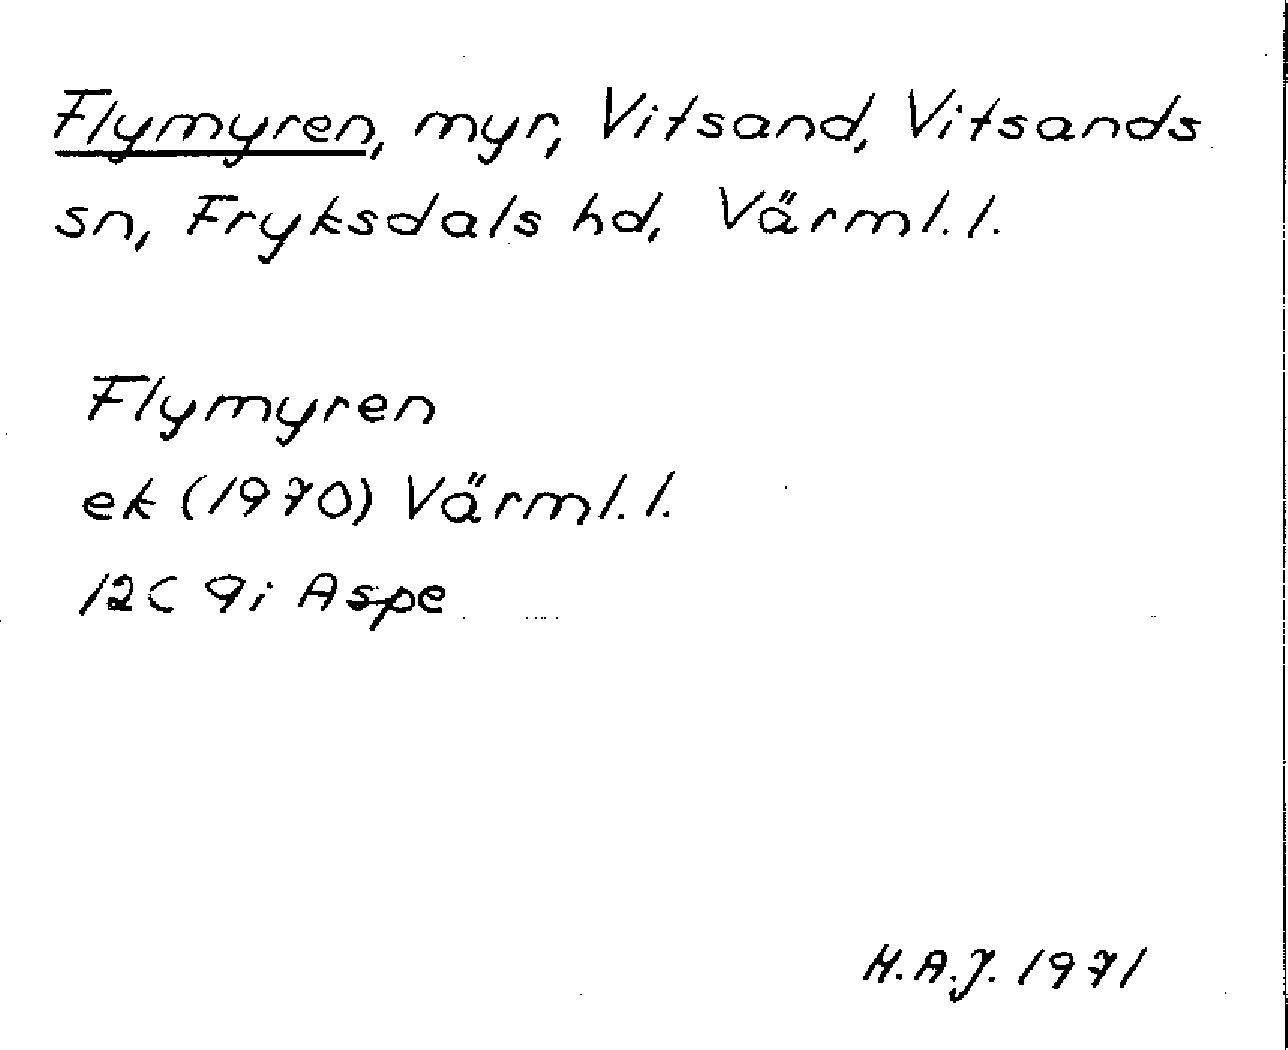 Flymyren, myr, Vitsand, Vitsands
sn, Fryksdals hd, Värml. l.
Flymyren
ek (1970) Värml. l.
12C 9i Aspe
H.A.J. 1971